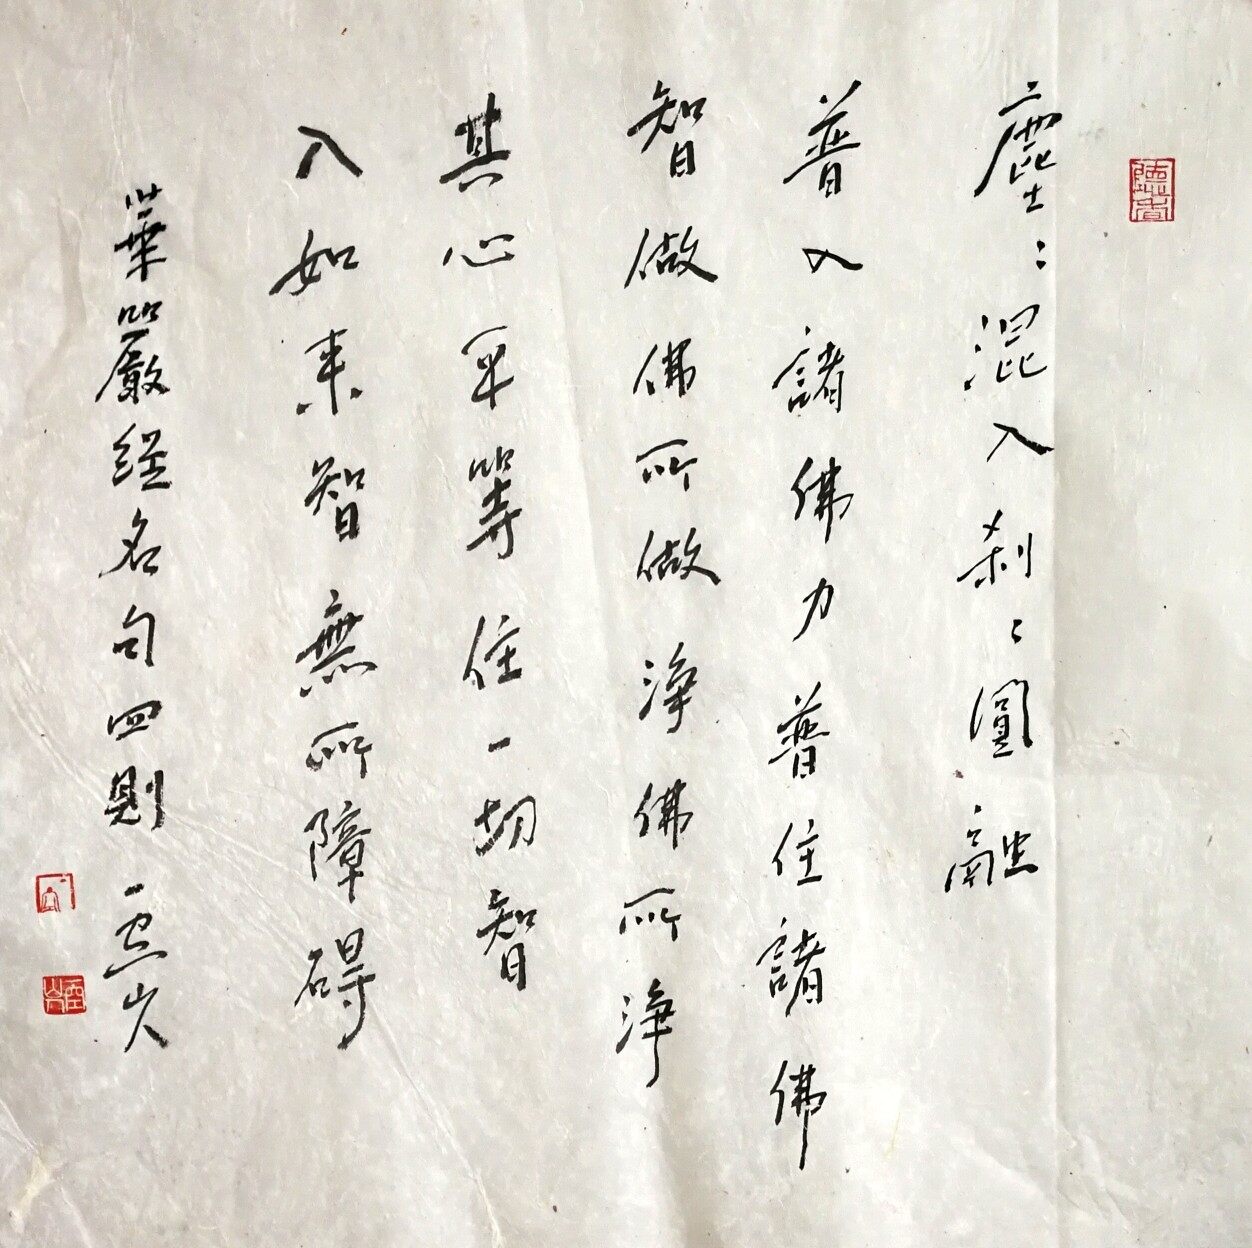 聽香
塵〻混入刹〻圓融
普入諸佛力普住諸佛
智做佛所做淨佛所淨
其心平等住一切智
入如来智無所障碍
華嚴経名句四則 一